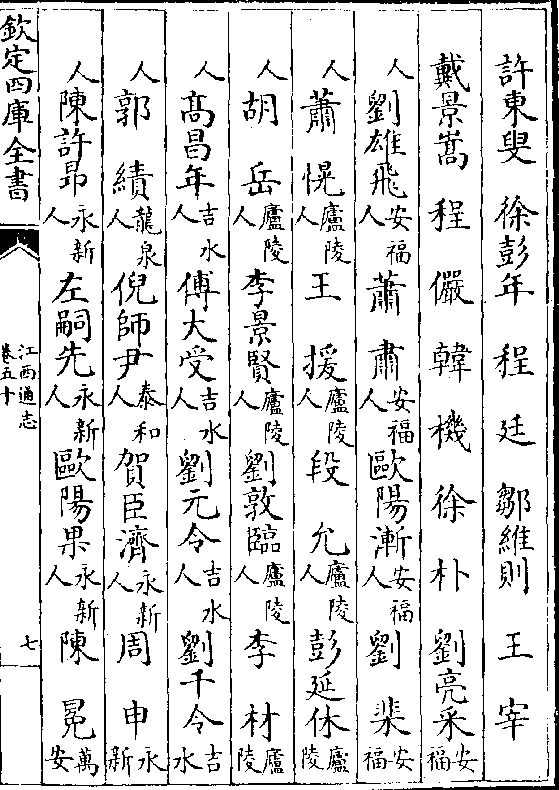 許東叟 徐彭年 程廷 鄒維則 王宰
戴景嵩 程儼 韓機 徐朴 劉亮采安福
人 劉雄飛安福人 蕭肅安福人 歐陽漸安福人 劉棐安福
人 蕭愰廬陵人 王援廬陵人 段允廬陵人 彭延休廬陵
人 胡岳廬陵人 李景賢廬陵人 劉敦臨廬陵人 李材廬陵
人 高昌年吉水人 傅大受吉水人 劉元令吉水人 劉千令吉水
人 郭績龍泉人 倪師尹泰和人 賀臣濟永新人 周申永新
人 陳許昂永新人 左嗣先永新人 歐陽果永新人 陳冕萬安
欽定四庫全書
江西通志
卷五十
七